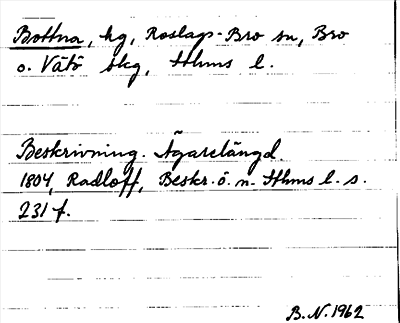 Bottna, hg, Roslags-Bro sn, Bro
o. Vätö skg, Sthms l.
Beskrivning. Ägarelängd.
1804, Radloff, Beskr. ö. n. Sthms l. s.
231 f.
B.N. 1962